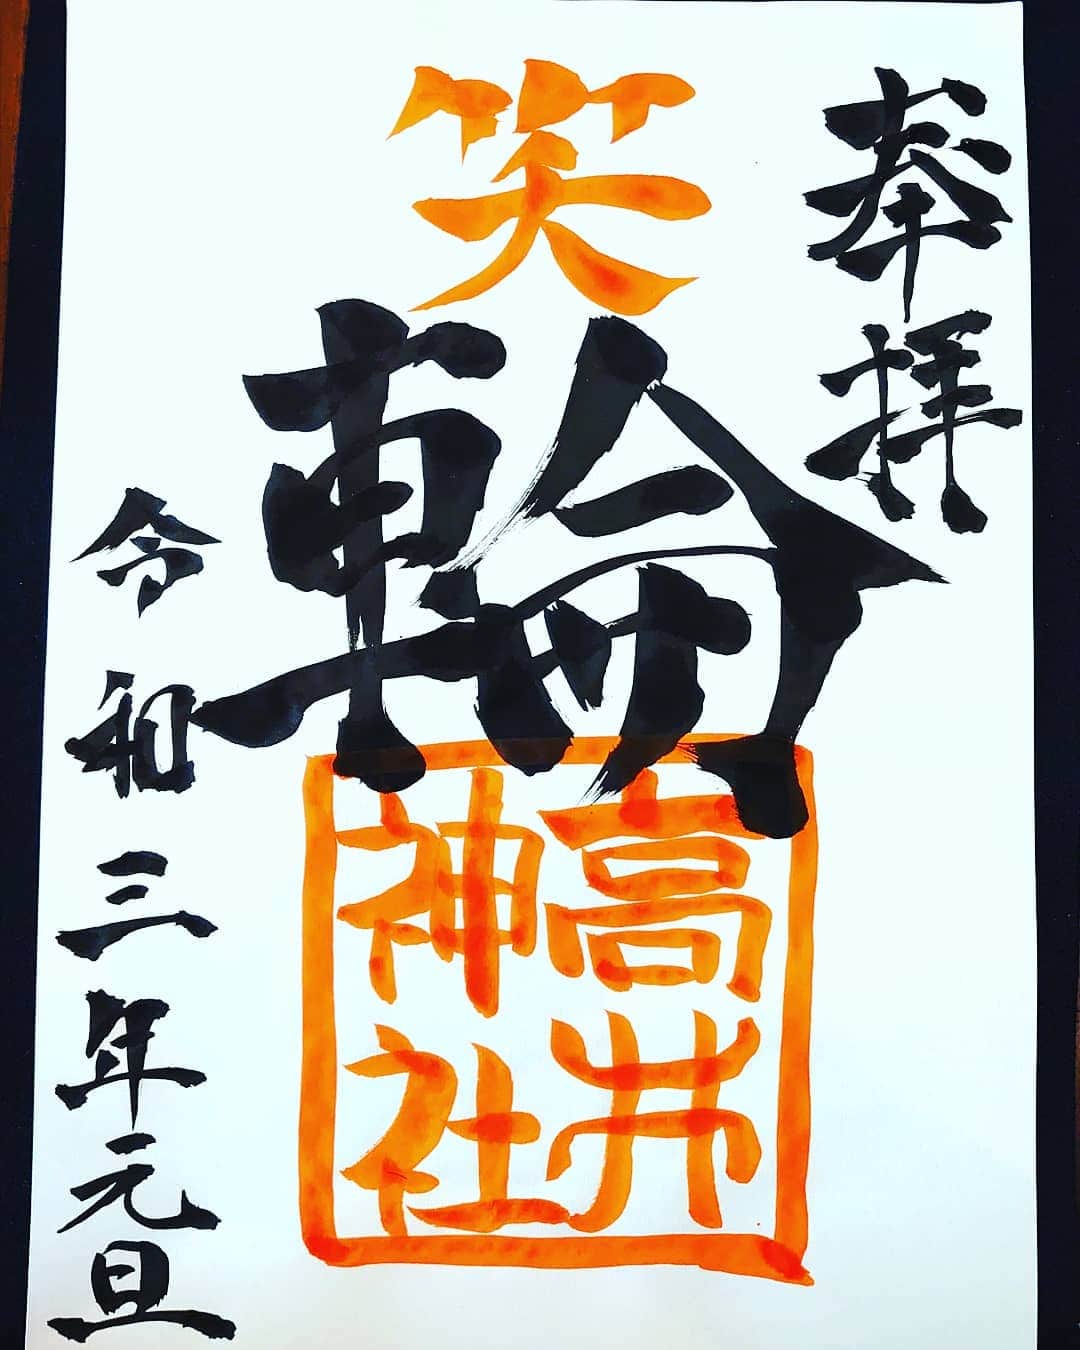 奉拝
笑
輪
高井
神社
令和三年元旦